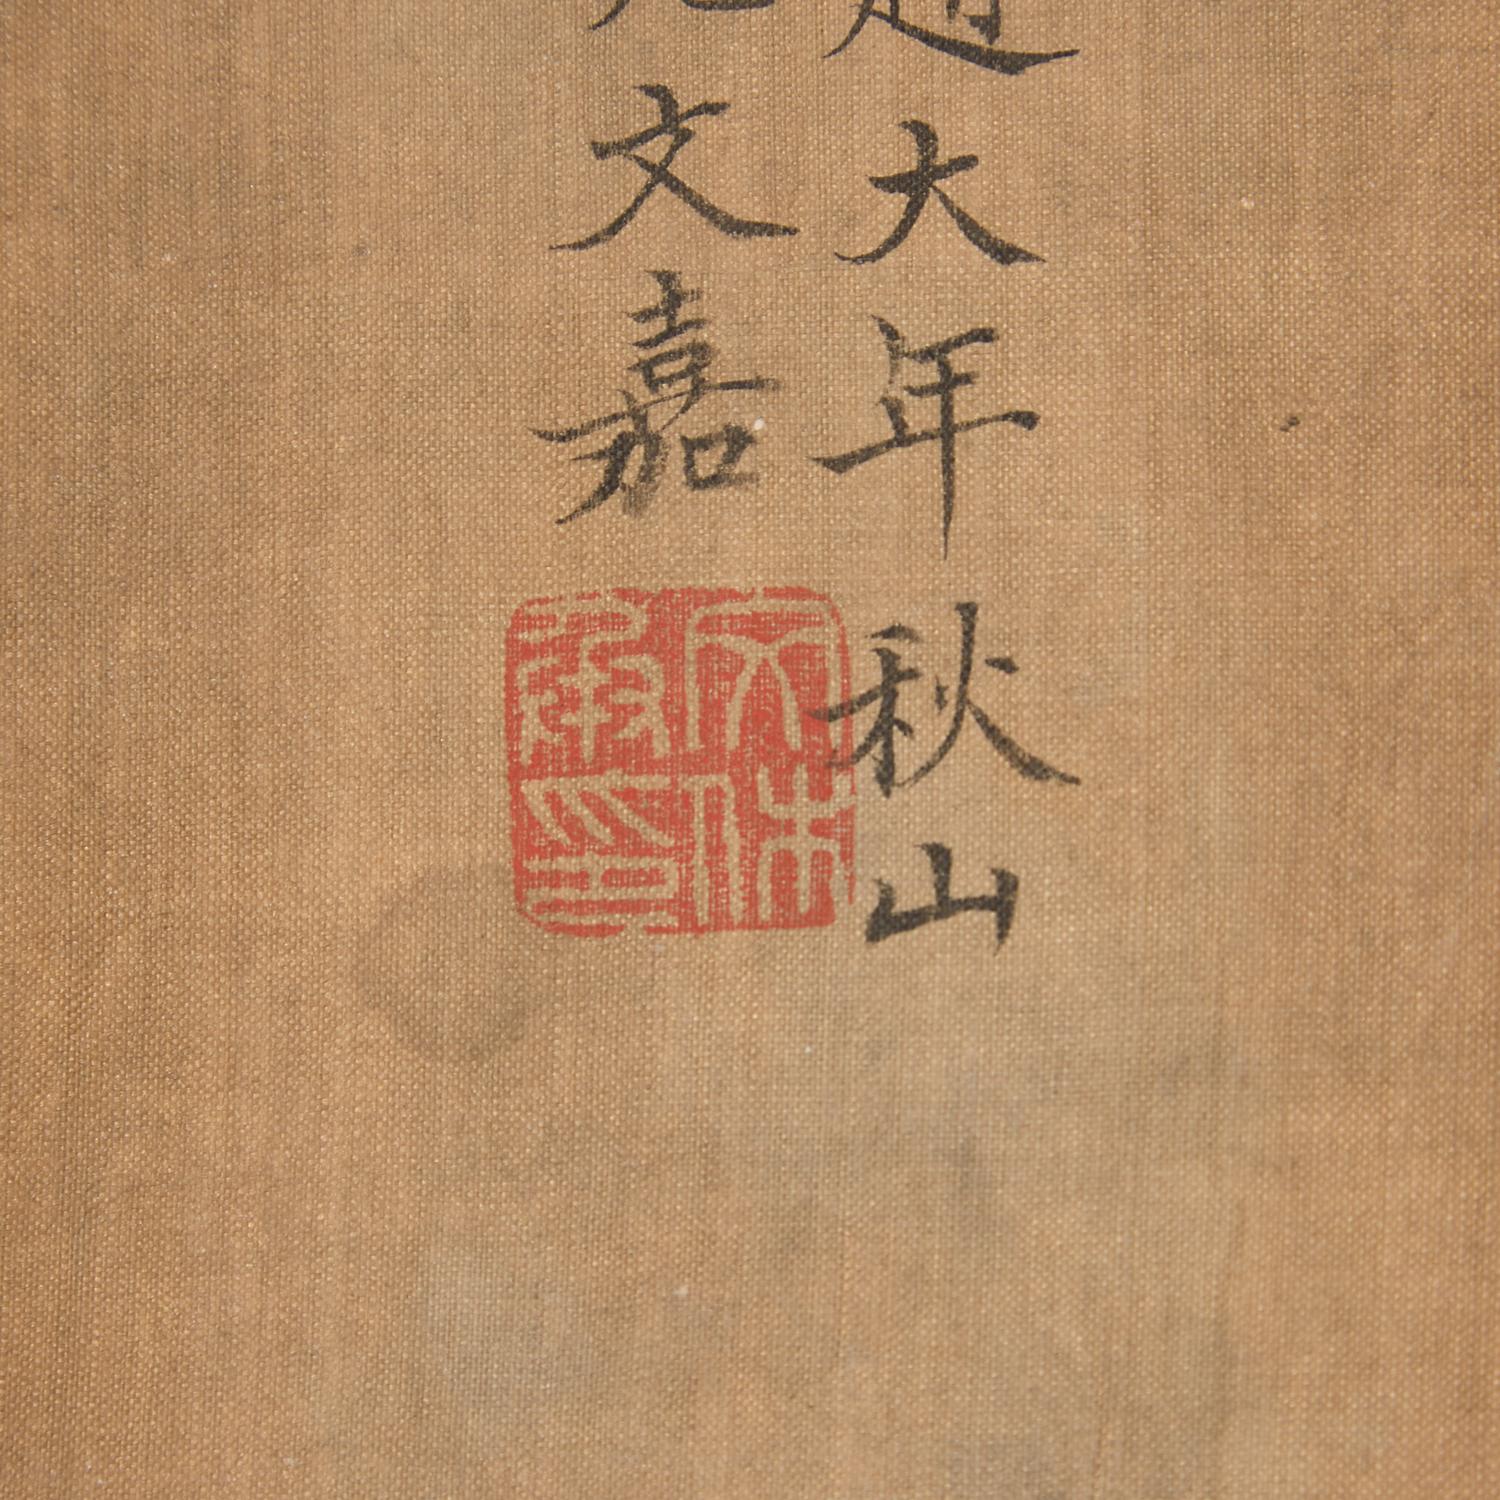 趙大年秋山
文嘉
文休承印